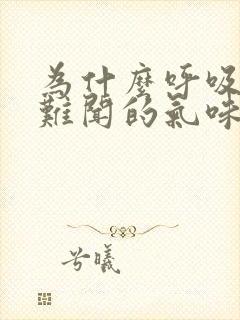 為什麼呼吸
難聞的氣味
兮曦